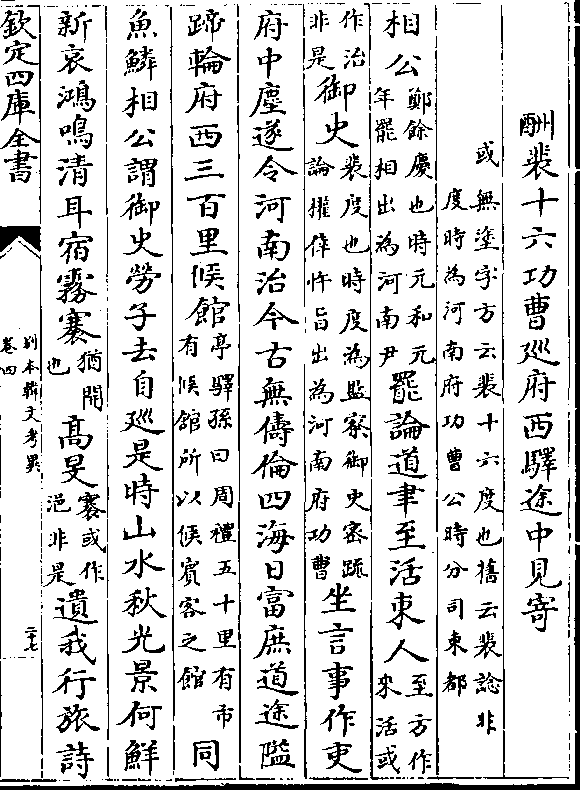 酬裴十六功曹廵府西驛途中見寄
或無塗字方云裴十六度也舊云裴諗非
度時為河南府功曹公時分司東都
相公鄭餘慶也時元和元年罷相出為河南尹罷論道聿至活東人至方作來活或
作治非是御史裴度也時度為監察御史密疏論權倖忤旨出為河南府功曹坐言事作吏
府中塵遂令河南治今古無儔倫四海日富庶道途隘
蹄輪府西三百里候館亭驛孫曰周禮五十里有市有候館所以候賔客之館同
魚鱗相公謂御史勞子去自廵是時山水秋光景何鮮
新哀鴻鳴清耳宿霧褰猶開也高旻褰或作浥非是遺我行旅詩
欽定四庫全書
別本韓文考異
卷四
二十七